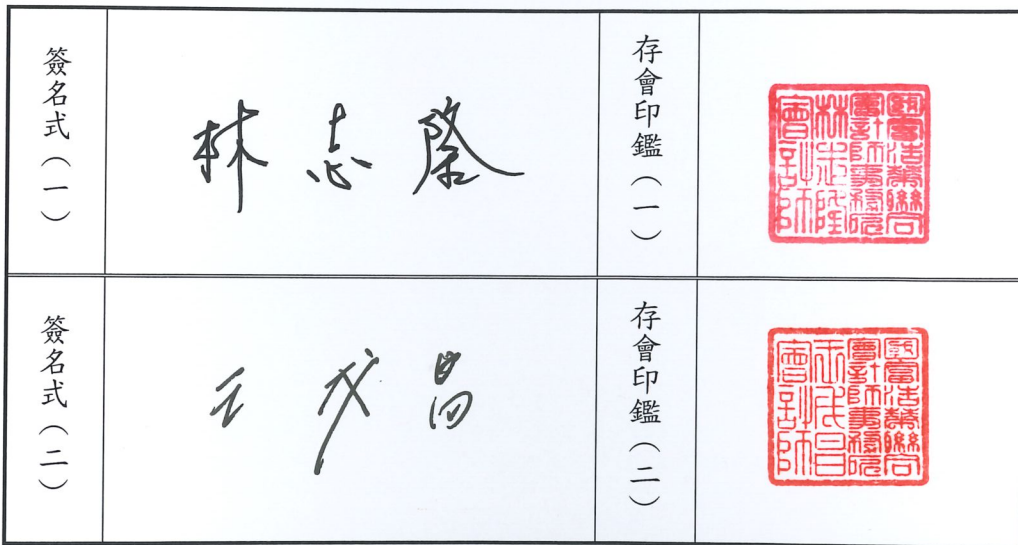 簽名式（一）
林志隆
存會印鑑（一）
會計師事務所
林志隆
會計師
簽名式（二）
王戊昌
存會印鑑（二）
會計師事務所
王戊昌
會計師